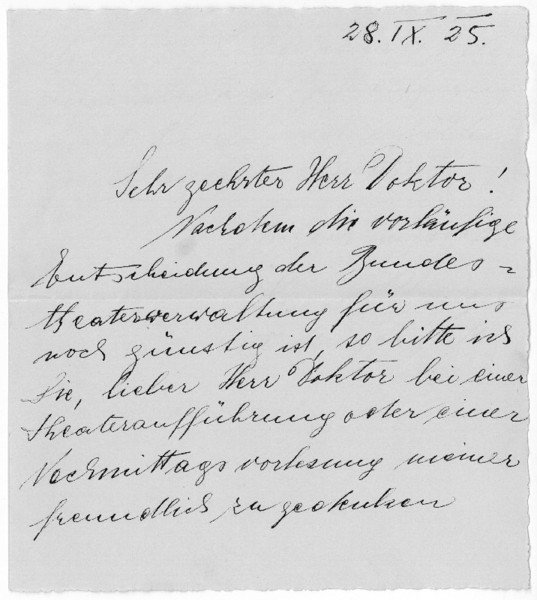 28. IX. 25.
Sehr geehrter Herr Doktor!
Nachdem die vorläufige
Entscheidung der Bundes=
theaterverwaltung für uns
noch günstig ist, so bitte ich
Sie, lieber Herr Doktor bei einer
Theateraufführung oder einer
Nachmittagsvorlesung meiner
freundlich zu gedenken